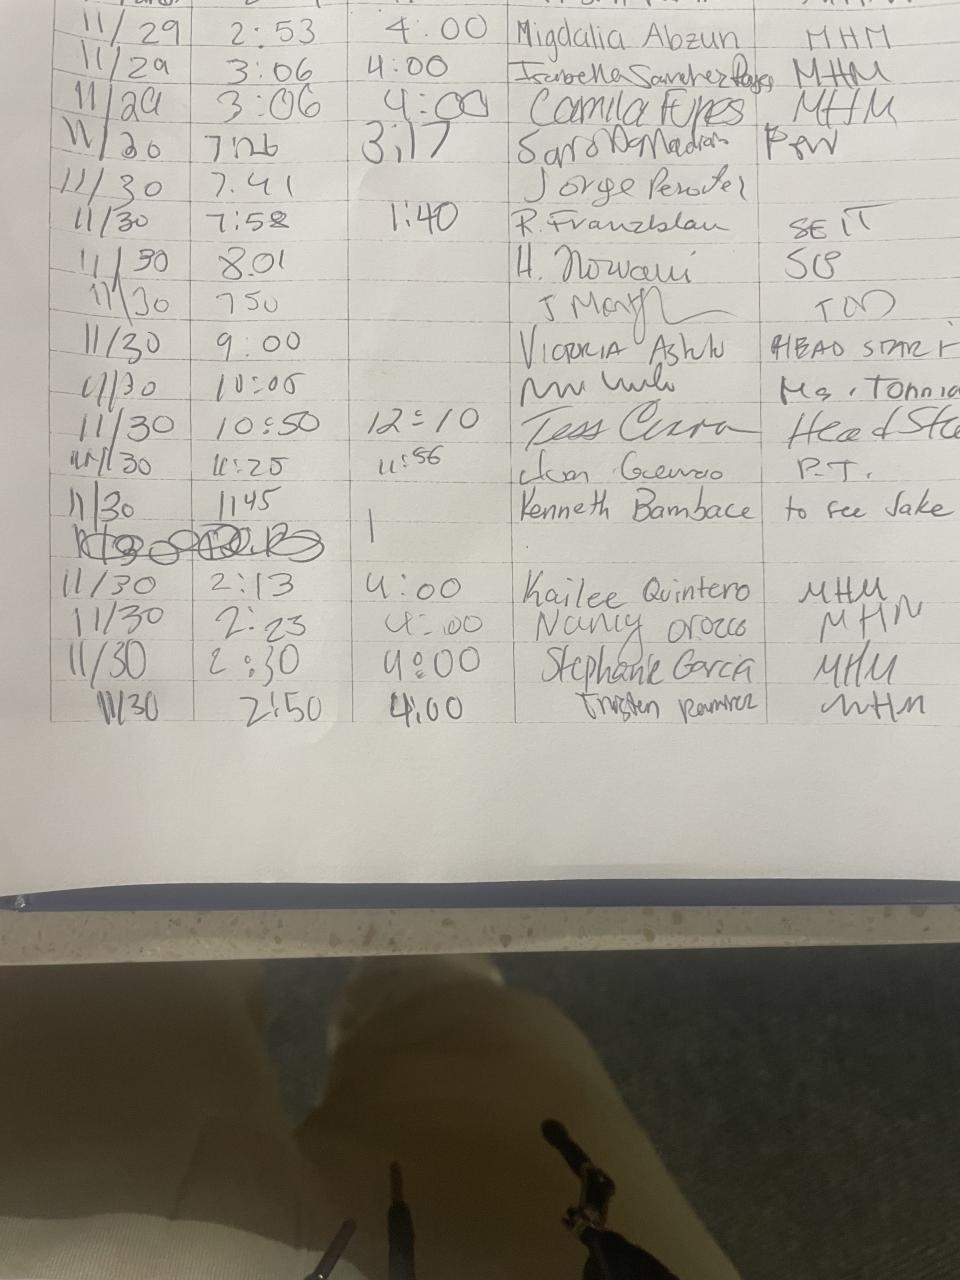 11/29 2:53 4:00 Migdalia Abzun MHM
11/29 3:06 4:00 Isabella Sanchez MHM
11/29 3:06 4:00 Camila MHM
11/30 7:26 3:17
11/30 7:41 Jorge
11/30 7:58 1:40 R. Franzblau SEIT
11/30 8:01 H.
11/30 750 J
11/30 9:00 Victoria HEAD START
11/30 10:05 Ms.
11/30 10:50 12:10 Tess Head
11/30 11:25 11:56 P.T.
11/30 1145 Kenneth Bambace to see Jake
11/30 2:13 4:00 Kailee Quintero MHM
11/30 2:23 4:00 Nancy Orozco MHM
11/30 2:30 4:00 Stephanie Garcia MHM
11/30 2:50 4:00 Ramirez MHM